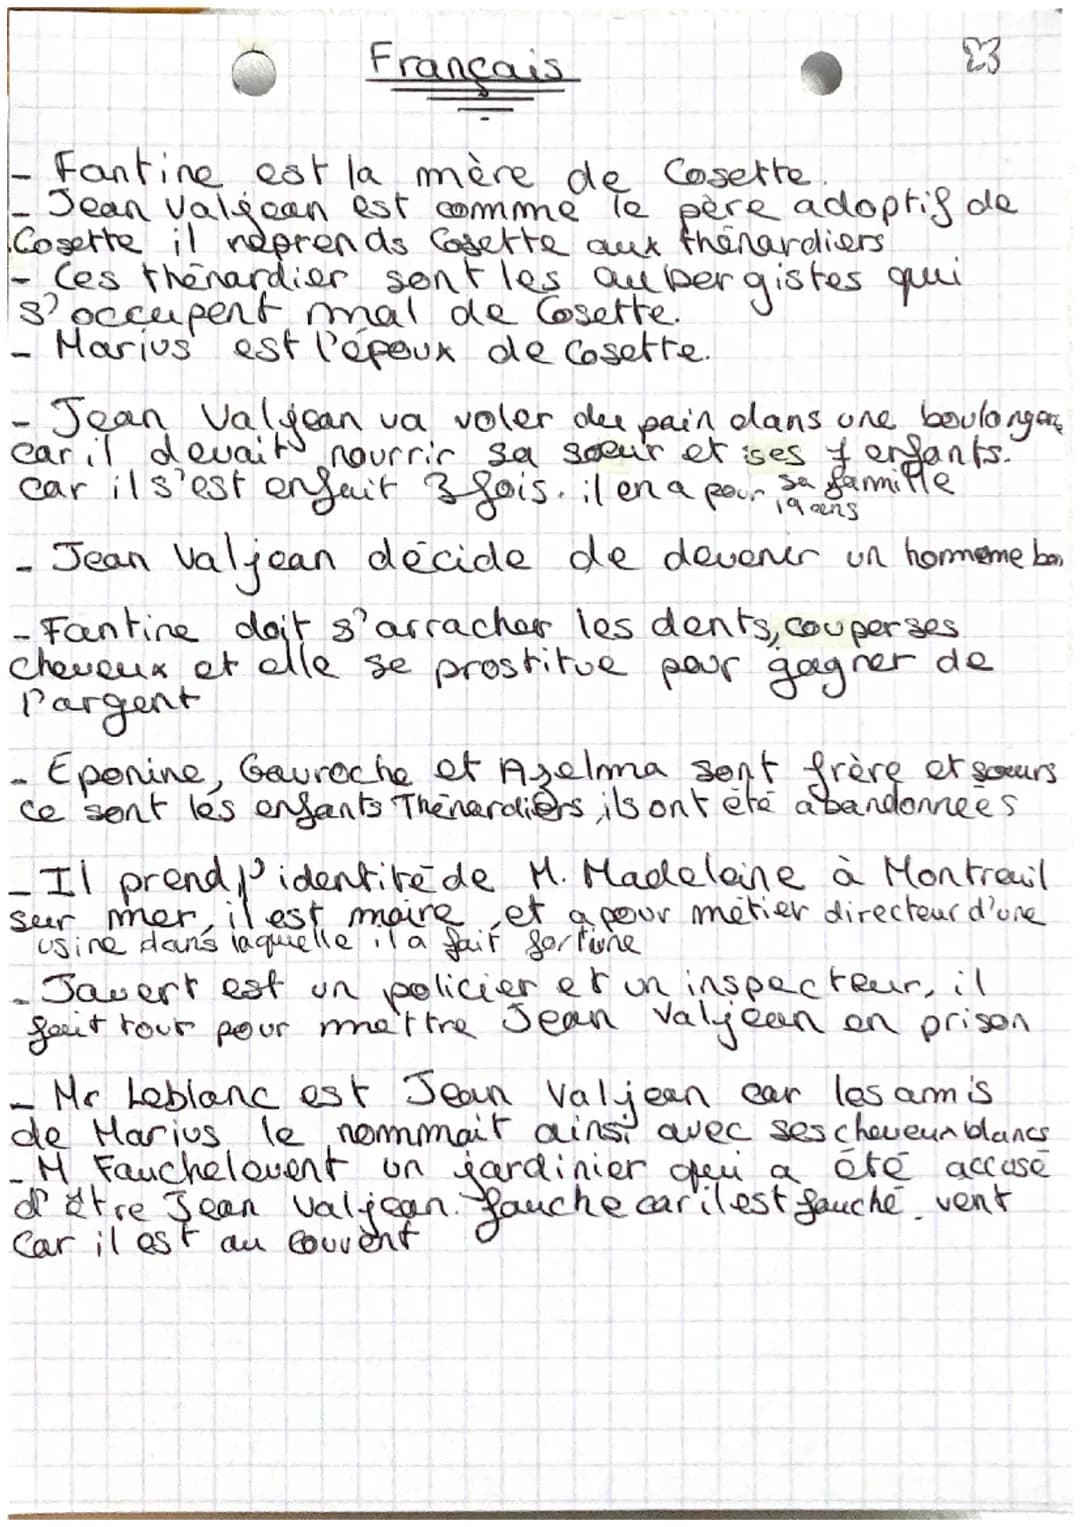 Français
- Fantine est la mère de Cosette.
- Jean Valjean est comme le père adoptif de
Cosette il reprends Cosette aux thénardiers
- Ces thénardier sont les aubergistes qui
s'occupent mal de Cosette.
- Marius est l'époux de Cosette.
- Jean Valjean va voler du pain dans une boulangerie
car il devait nourrir sa soeur et ses 7 enfants.
car il s'est enfuit 3 fois. il en a pour sa famille
19 ans
- Jean Valjean décide de devenir un hommeme bon
- Fantine doit s'arracher les dents, couper ses
cheveux et elle se prostitue pour gagner de
l'argent
- Eponine, Gavroche et Azelma sont frère et soeurs
ce sont les enfants Thénardiers, ils ont été abandonnées
- Il prend l'identité de M. Madeleine à Montreuil
sur mer, il est maire et a pour métier directeur d'une
usine dans laquelle il a fait fortune
- Javert est un policier et un inspecteur, il
fait tout pour mettre Jean Valjean en prison
- Mr Leblanc est Jean Valjean car les amis
de Marius le nommait ainsi avec ses cheveux blancs
- M Fauchelevent un jardinier qui a été accusé
d'être Jean Valjean. fauche car il est fauché. vent
Car il est au couvent